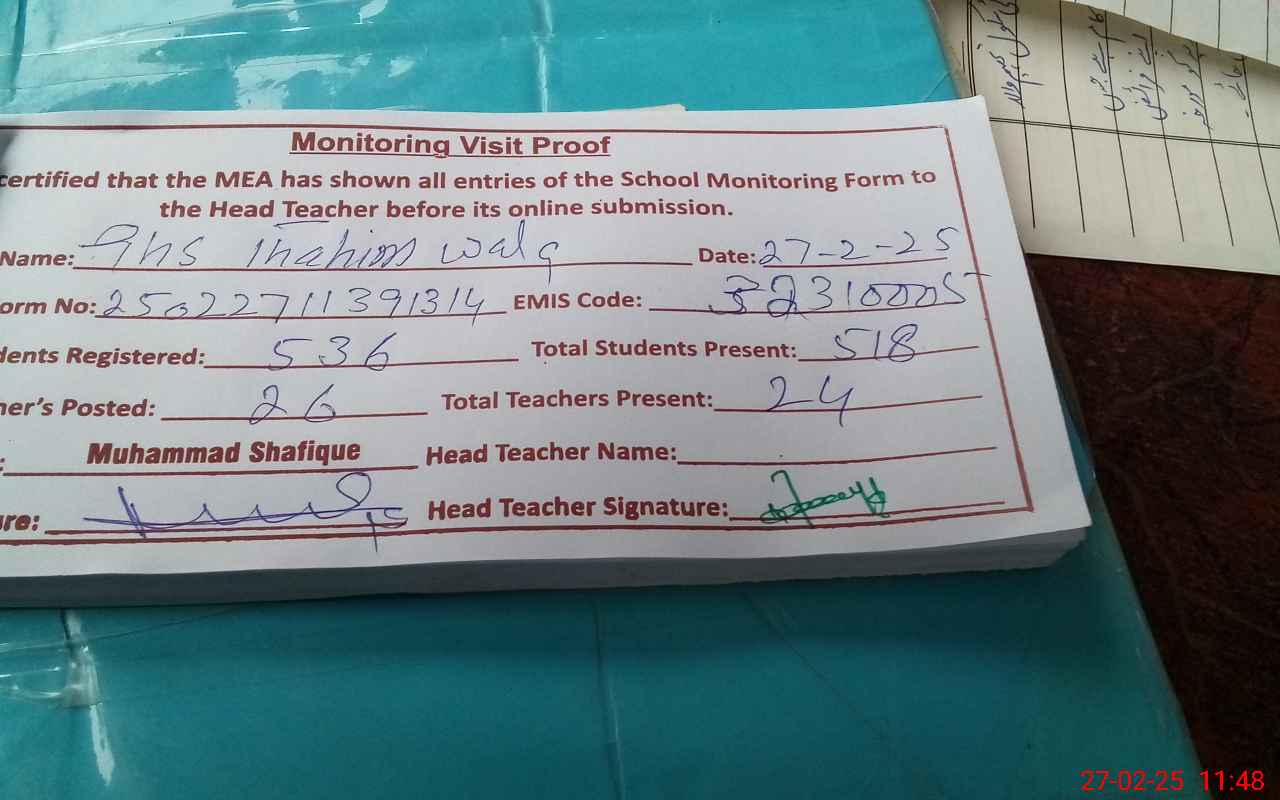 Monitoring Visit Proof
certified that the MEA has shown all entries of the School Monitoring Form to
the Head Teacher before its online submission.
Name: Ghs Thahim wala Date: 27-2-25
orm No: 250227711391314 EMIS Code: 32310005
dents Registered: 536 Total Students Present: 518
her's Posted: 26 Total Teachers Present: 24
: Muhammad Shafique Head Teacher Name:
re: Head Teacher Signature:
27-02-25 11:48